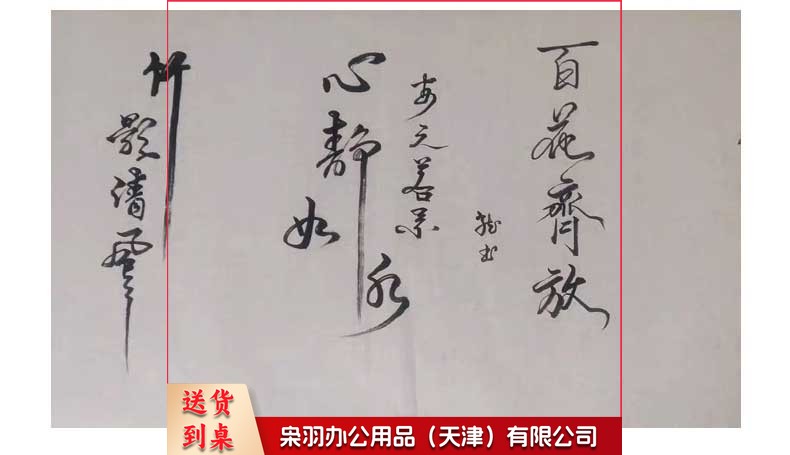 百花齊放
心靜如水
竹影清風
送货
到桌
枭羽办公用品（天津）有限公司